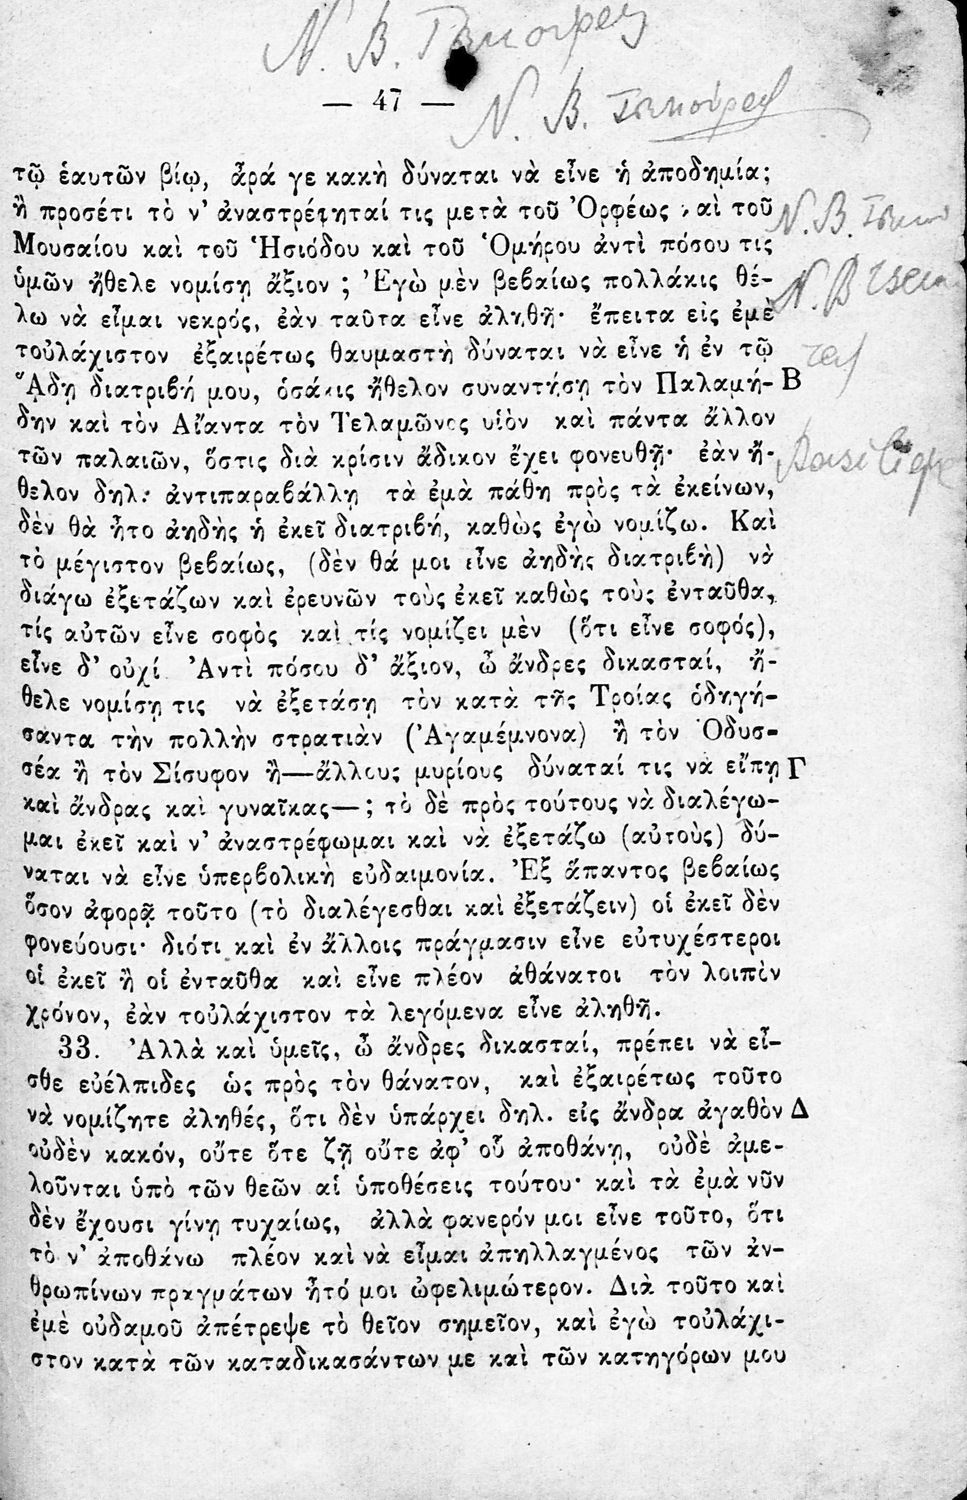 — 47 —
τῷ ἑαυτῶν βίῳ, ἆρά γε κακὴ δύναται νὰ εἶνε ἡ ἀποδημία;
ἢ προσέτι τὸ ν' ἀναστρέφηταί τις μετὰ τοῦ Ὀρφέως καὶ τοῦ
Μουσαίου καὶ τοῦ Ἡσιόδου καὶ τοῦ Ὁμήρου ἀντὶ πόσου τις
ὑμῶν ἤθελε νομίσῃ ἄξιον ; Ἐγὼ μὲν βεβαίως πολλάκις θέ-
λω νὰ εἶμαι νεκρός, ἐὰν ταῦτα εἶνε ἀληθῆ· ἔπειτα εἰς ἐμὲ
τοὐλάχιστον ἐξαιρέτως θαυμαστὴ δύναται νὰ εἶνε ἡ ἐν τῷ
Ἅδῃ διατριβή μου, ὁσάκις ἤθελον συναντήσῃ τὸν Παλαμή- Β
δην καὶ τὸν Αἴαντα τὸν Τελαμῶνος υἱὸν καὶ πάντα ἄλλον
τῶν παλαιῶν, ὅστις διὰ κρίσιν ἄδικον ἔχει φονευθῇ· ἐὰν ἤ-
θελον δηλ. ἀντιπαραβάλλῃ τὰ ἐμὰ πάθη πρὸς τὰ ἐκείνων,
δὲν θὰ ἦτο ἀηδὴς ἡ ἐκεῖ διατριβή, καθὼς ἐγὼ νομίζω. Καὶ
τὸ μέγιστον βεβαίως, (δὲν θά μοι εἶνε ἀηδὴς διατριβὴ) νὰ
διάγω ἐξετάζων καὶ ἐρευνῶν τοὺς ἐκεῖ καθὼς τοὺς ἐνταῦθα,
τίς αὐτῶν εἶνε σοφὸς καὶ τίς νομίζει μὲν (ὅτι εἶνε σοφός),
εἶνε δ' οὐχί. Ἀντὶ πόσου δ' ἄξιον, ὦ ἄνδρες δικασταί, ἤ-
θελε νομίσῃ τις νὰ ἐξετάσῃ τὸν κατὰ τῆς Τροίας ὁδηγή-
σαντα τὴν πολλὴν στρατιὰν (Ἀγαμέμνονα) ἢ τὸν Ὀδυσ-
σέα ἢ τὸν Σίσυφον ἢ—ἄλλους μυρίους δύναταί τις νὰ εἴπῃ Γ
καὶ ἄνδρας καὶ γυναῖκας—; τὸ δὲ πρὸς τούτους νὰ διαλέγω-
μαι ἐκεῖ καὶ ν' ἀναστρέφωμαι καὶ νὰ ἐξετάζω (αὐτοὺς) δύ-
ναται νὰ εἶνε ὑπερβολικὴ εὐδαιμονία. Ἐξ ἅπαντος βεβαίως
ὅσον ἀφορᾷ τοῦτο (τὸ διαλέγεσθαι καὶ ἐξετάζειν) οἱ ἐκεῖ δὲν
φονεύουσι· διότι καὶ ἐν ἄλλοις πράγμασιν εἶνε εὐτυχέστεροι
οἱ ἐκεῖ ἢ οἱ ἐνταῦθα καὶ εἶνε πλέον ἀθάνατοι τὸν λοιπὸν
χρόνον, ἐὰν τοὐλάχιστον τὰ λεγόμενα εἶνε ἀληθῆ.
33. Ἀλλὰ καὶ ὑμεῖς, ὦ ἄνδρες δικασταί, πρέπει νὰ εἶ-
σθε εὐέλπιδες ὡς πρὸς τὸν θάνατον, καὶ ἐξαιρέτως τοῦτο
νὰ νομίζητε ἀληθές, ὅτι δὲν ὑπάρχει δηλ. εἰς ἄνδρα ἀγαθὸν Δ
οὐδὲν κακόν, οὔτε ὅτε ζῇ οὔτε ἀφ' οὗ ἀποθάνῃ, οὐδὲ ἀμε-
λοῦνται ὑπὸ τῶν θεῶν αἱ ὑποθέσεις τούτου· καὶ τὰ ἐμὰ νῦν
δὲν ἔχουσι γίνῃ τυχαίως, ἀλλὰ φανερόν μοι εἶνε τοῦτο, ὅτι
τὸ ν' ἀποθάνω πλέον καὶ νὰ εἶμαι ἀπηλλαγμένος τῶν ἀν-
θρωπίνων πραγμάτων ἦτό μοι ὠφελιμώτερον. Διὰ τοῦτο καὶ
ἐμὲ οὐδαμοῦ ἀπέτρεψε τὸ θεῖον σημεῖον, καὶ ἐγὼ τοὐλάχι-
στον κατὰ τῶν καταδικασάντων με καὶ τῶν κατηγόρων μου